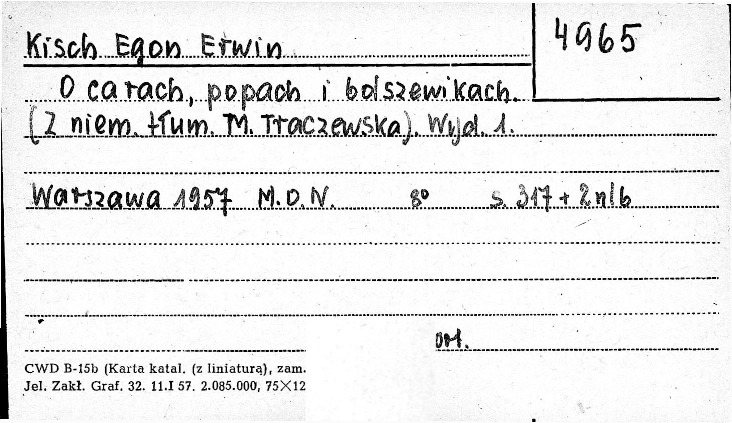 4965
Kisch Egon Erwin
O carach, popach i bolszewikach.
(Z niem. tłum. M. Traczewska). Wyd. 1.
Warszawa 1957 M.O.N. 8° s. 317 + 2 nlb
CWD B-15b (Karta katal. (z liniaturą), zam.
Jel. Zakł. Graf. 32. 11.I 57. 2.085.000, 75×12